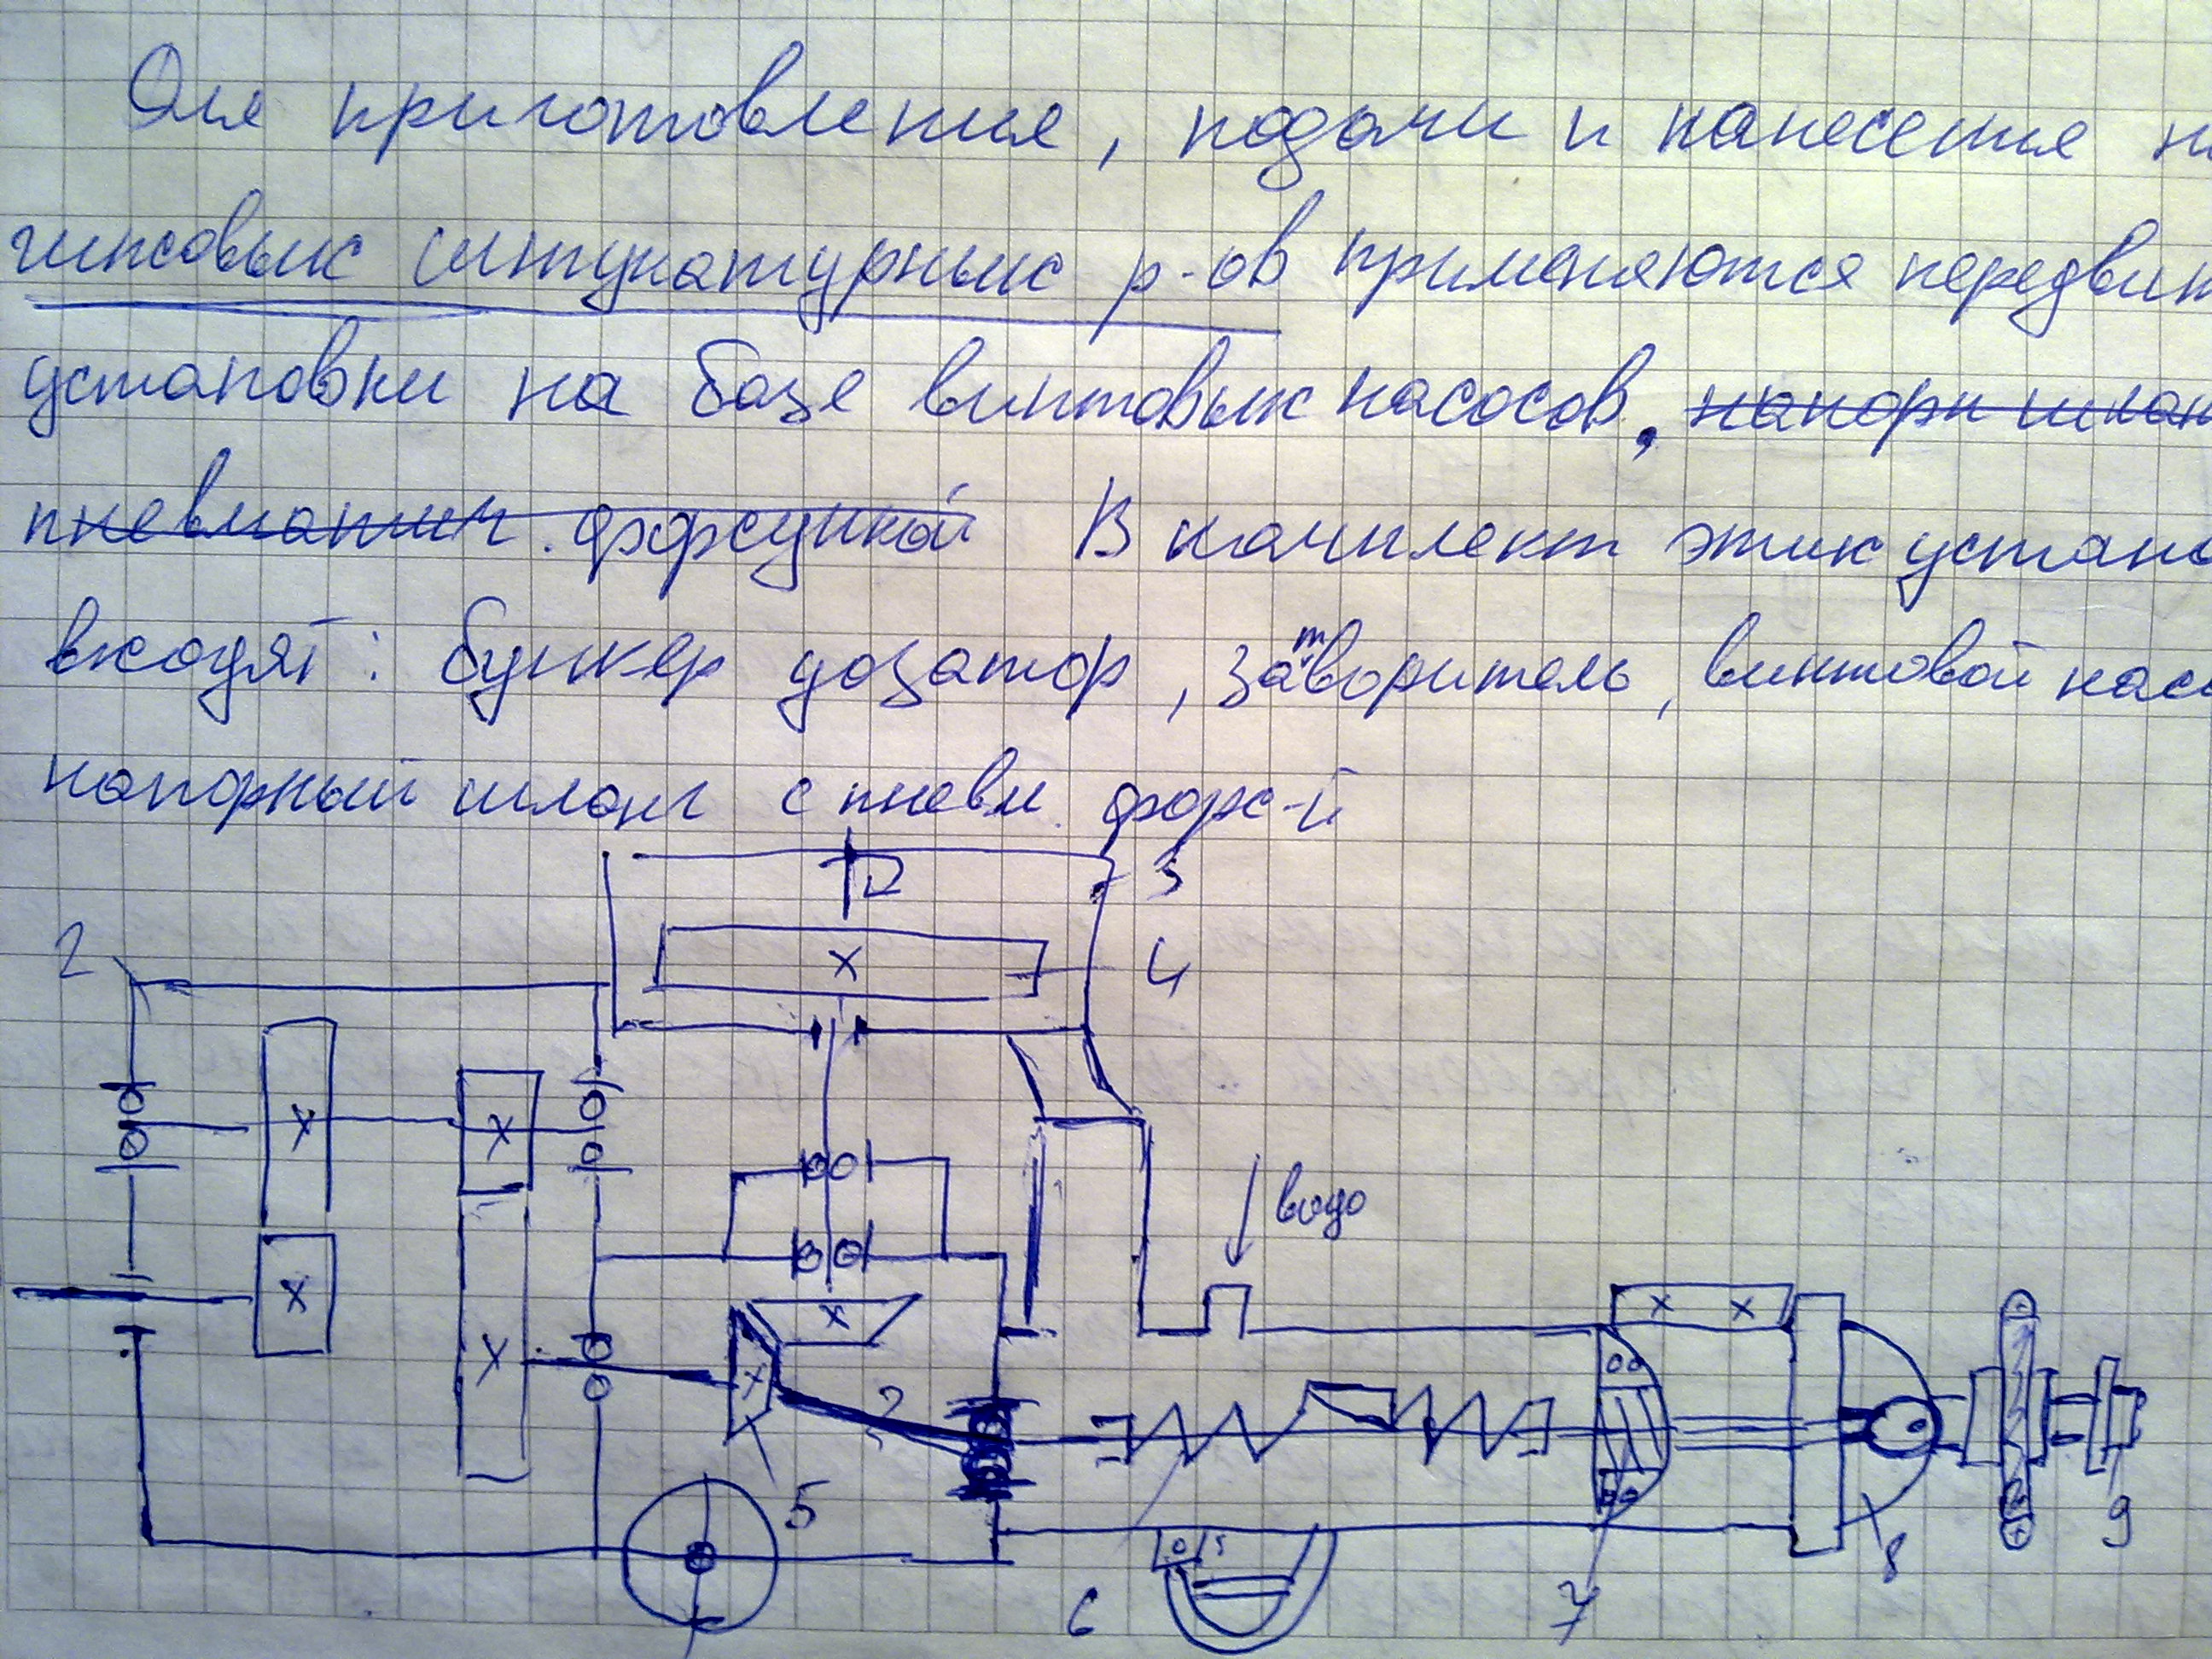 Для приготовления, подачи и нанесения
гипсовых штукатурных р-ов применяются передвиж
установки на базе винтовых насосов, напорн шлан
пневматич. форсункой В комплект этих устано
входят: бункер дозатор, затворитель, винтовой насо
напорный шланг с пневм. форс-й
3
2
4
вода
5
9
8
6
7